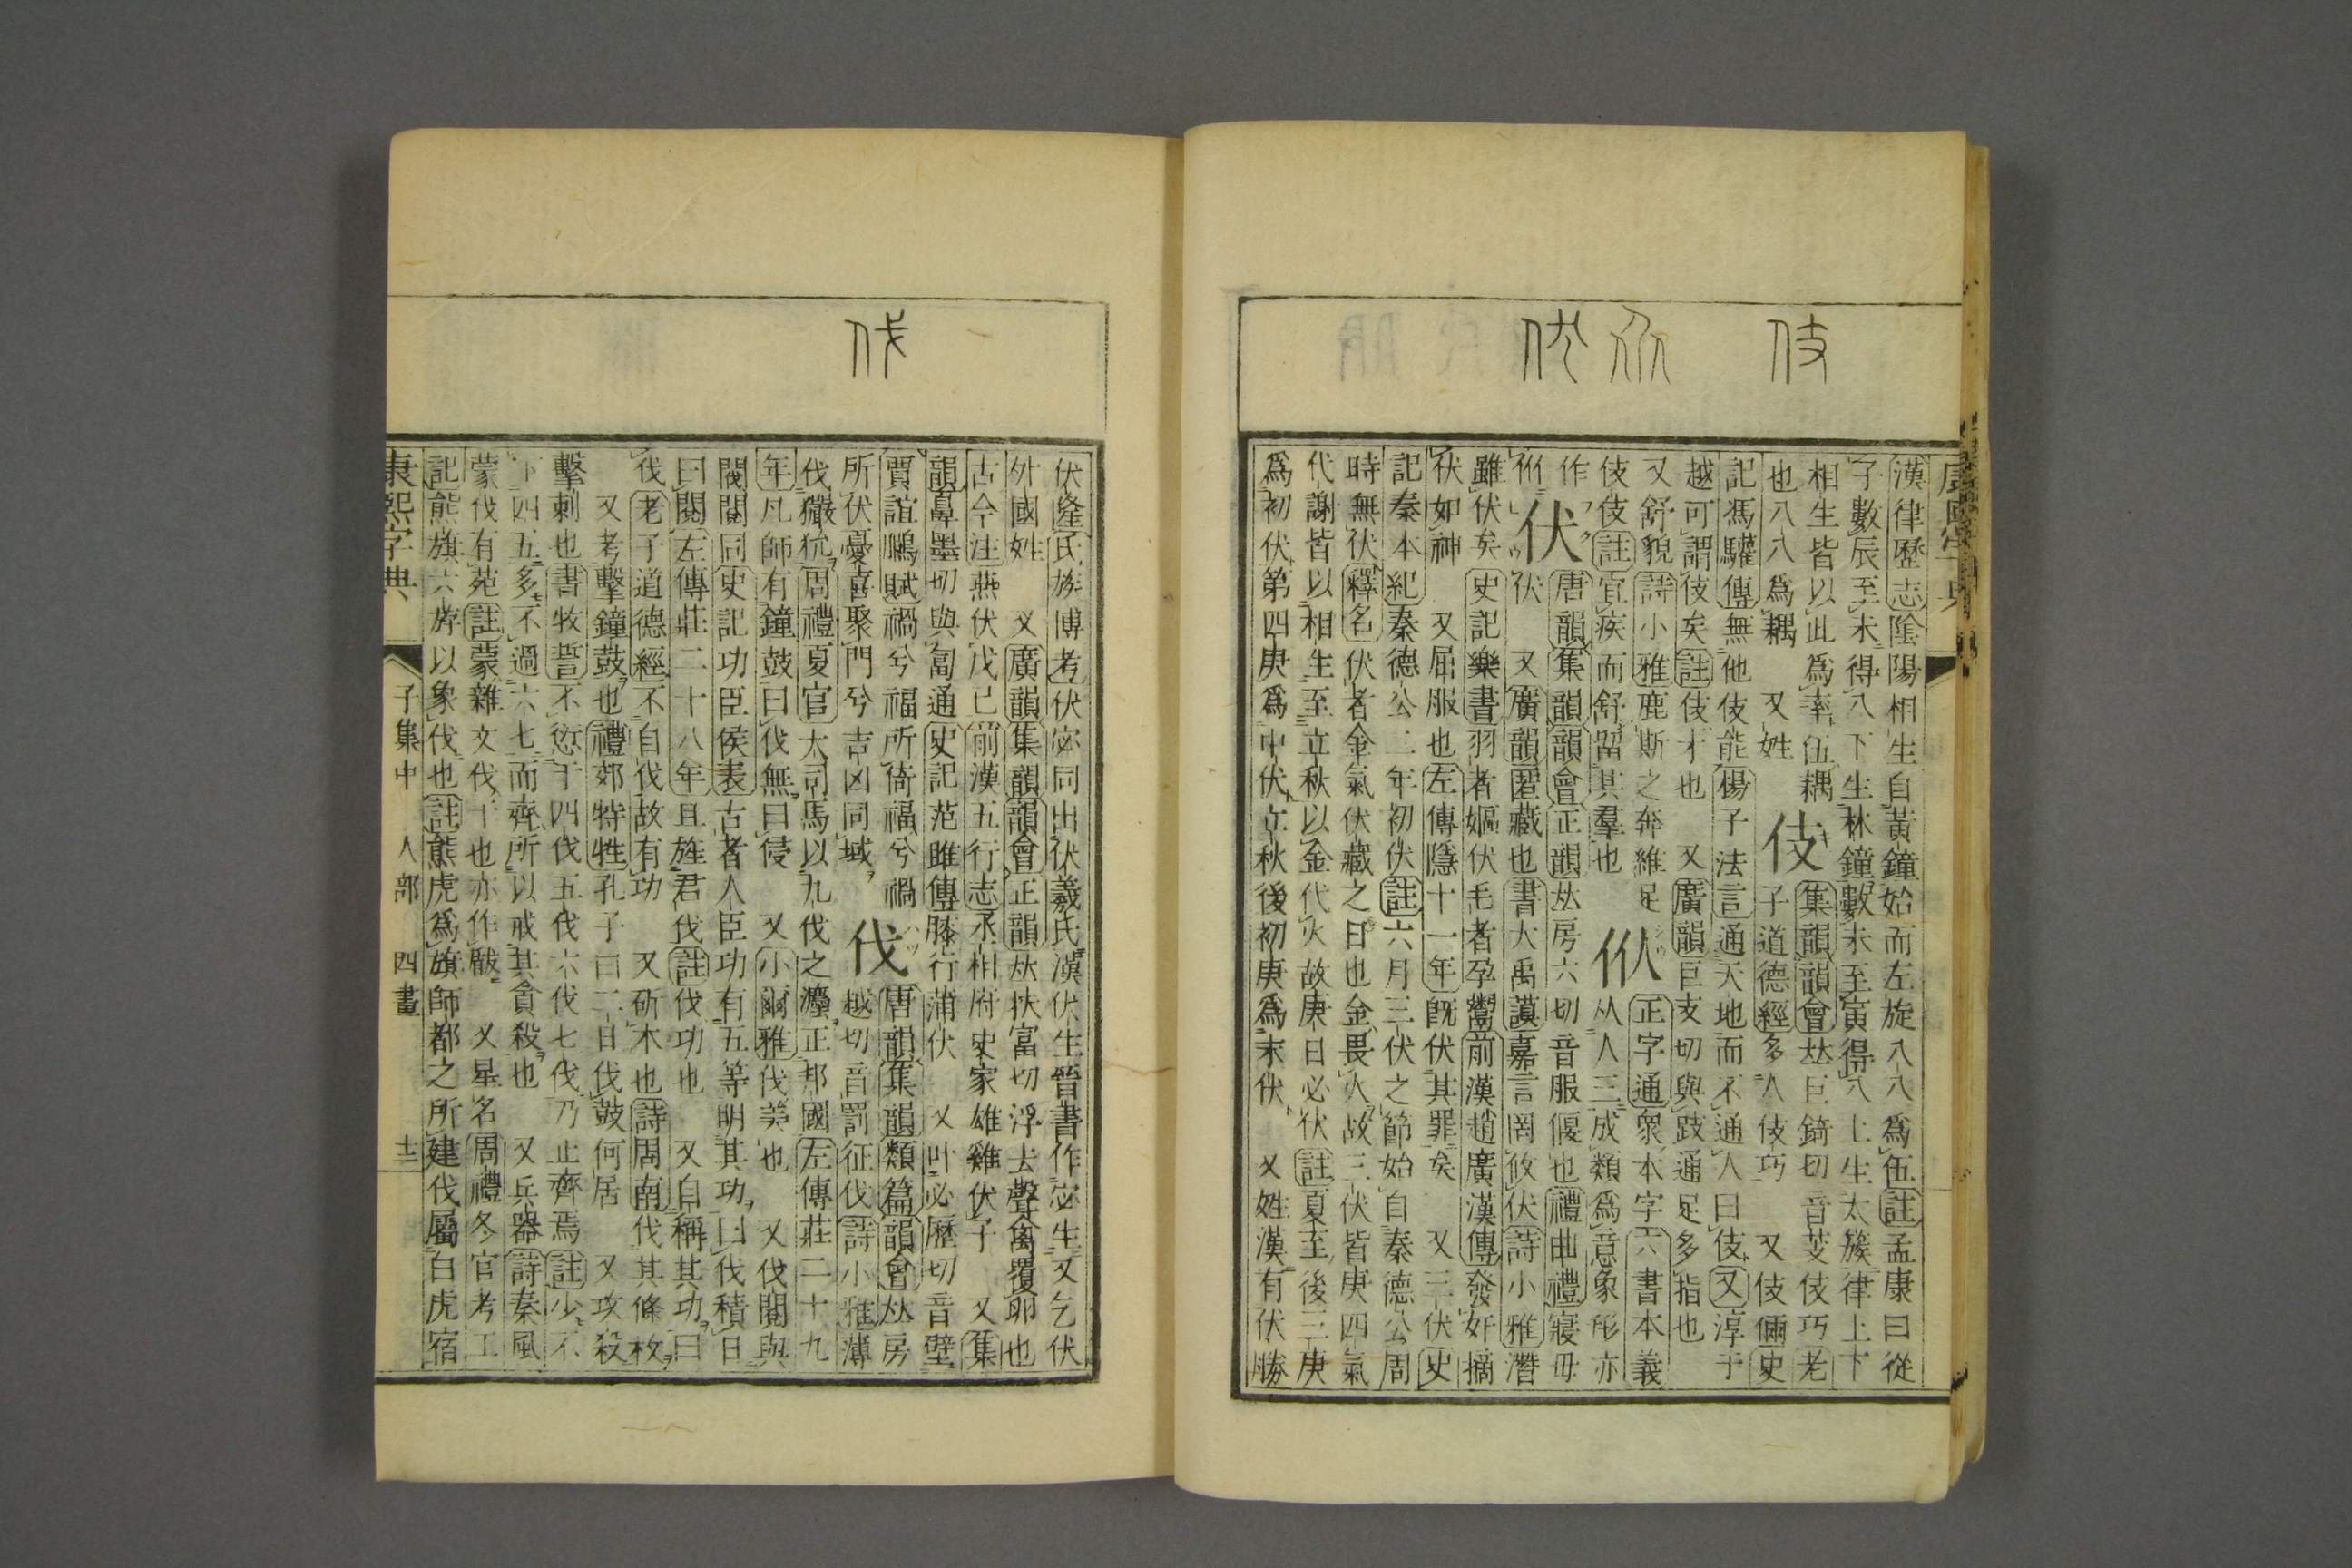 漢律歷志陰陽相生自黃鐘始而左旋八八爲伍註孟康曰從
子數辰至未得八下生林鐘數未至寅得八上生太簇律上下
相生皆以此爲率伍耦 伎 集韻韻會𠀤巨錡切音芰伎巧老
也八八爲耦 又姓 子道德經多人伎巧 又伎倆史
記馮驩傳無他伎能楊子法言通天地而不通人曰伎又淳于
越可謂伎矣註伎才也 又廣韻巨支切與跂通足多指也
又舒貌詩小雅鹿斯之奔維足 㐺 正字通衆本字六書本義
伎伎註宜疾而舒留其羣也 从人三成類爲意象形亦
作 伏 唐韻集韻韻會正韻𠀤房六切音服偃也禮曲禮寢毋
伏 又廣韻匿藏也書大禹謨嘉言罔攸伏詩小雅潛
雖伏矣 史記樂書羽者嫗伏毛者孕鬻前漢趙廣漢傳發奸摘
伏如神 又屈服也左傳隱十一年旣伏其罪矣 又三伏史
記秦本紀秦德公二年初伏註六月三伏之節始自秦德公周
時無伏釋名伏者金氣伏藏之日也金畏火故三伏皆庚四氣
代謝皆以相生至立秋以金代火故庚日必伏註夏至後三庚
爲初伏第四庚爲中伏立秋後初庚爲末伏 又姓漢有伏勝
伏隆氏族博考伏宓同出伏羲氏漢伏生晉書作宓生又乞伏
外國姓 又廣韻集韻韻會正韻𠀤扶富切浮去聲禽覆卵也
古今注燕伏戊己前漢五行志丞相府史家雄雞伏子 又集
韻鼻墨切與匐通史記范雎傳膝行蒲伏 又叶必歷切音壁
賈誼鵩賦禍兮福所倚福兮禍 伐 唐韻集韻類篇韻會𠀤房
所伏憂喜聚門兮吉凶同域 越切音罰征伐詩小雅薄
伐玁狁周禮夏官大司馬以九伐之灋正邦國左傳莊二十九
年凡師有鐘鼓曰伐無曰侵 又小爾雅伐美也 又伐閱與
閥閱同史記功臣侯表古者人臣功有五等明其功曰伐積日
曰閱左傳莊二十八年且旌君伐註伐功也 又自稱其功曰
伐老子道德經不自伐故有功 又斫木也詩周南伐其條枚
又考擊鐘鼓也禮郊特牲孔子曰二日伐鼓何居 又攻殺
擊刺也書牧誓不愆于四伐五伐六伐七伐乃止齊焉註少不
下四五多不過六七而齊所以戒其貪殺也 又兵器詩秦風
蒙伐有苑註蒙雜文伐干也亦作瞂 又星名周禮冬官考工
記熊旗六斿以象伐也註熊虎爲旗師都之所建伐屬白虎宿
康熙字典 子集中 人部 四畫 十二